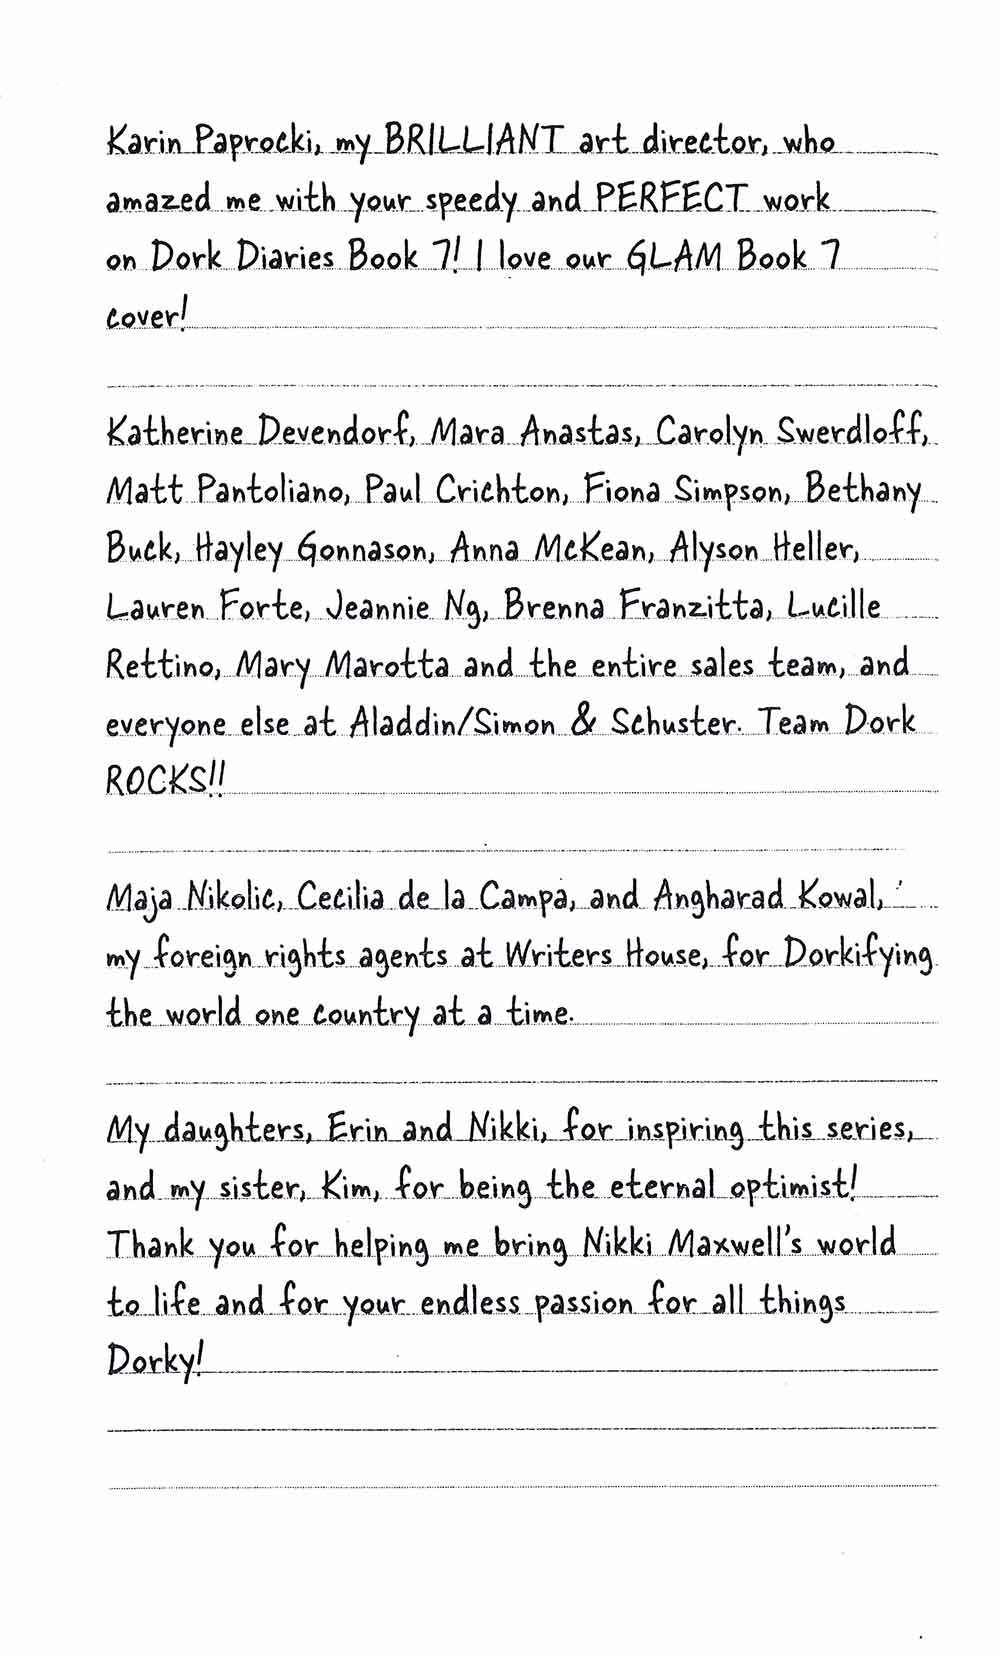 Karin Paprocki, my BRILLIANT art director, who
amazed me with your speedy and PERFECT work
on Dork Diaries Book 7! I love our GLAM Book 7
cover!
Katherine Devendorf, Mara Anastas, Carolyn Swerdloff,
Matt Pantoliano, Paul Crichton, Fiona Simpson, Bethany
Buck, Hayley Gonnason, Anna McKean, Alyson Heller,
Lauren Forte, Jeannie Ng, Brenna Franzitta, Lucille
Rettino, Mary Marotta and the entire sales team, and
everyone else at Aladdin/Simon & Schuster. Team Dork
ROCKS!!
Maja Nikolic, Cecilia de la Campa, and Angharad Kowal,
my foreign rights agents at Writers House, for Dorkifying
the world one country at a time.
My daughters, Erin and Nikki, for inspiring this series,
and my sister, Kim, for being the eternal optimist!
Thank you for helping me bring Nikki Maxwell's world
to life and for your endless passion for all things
Dorky!